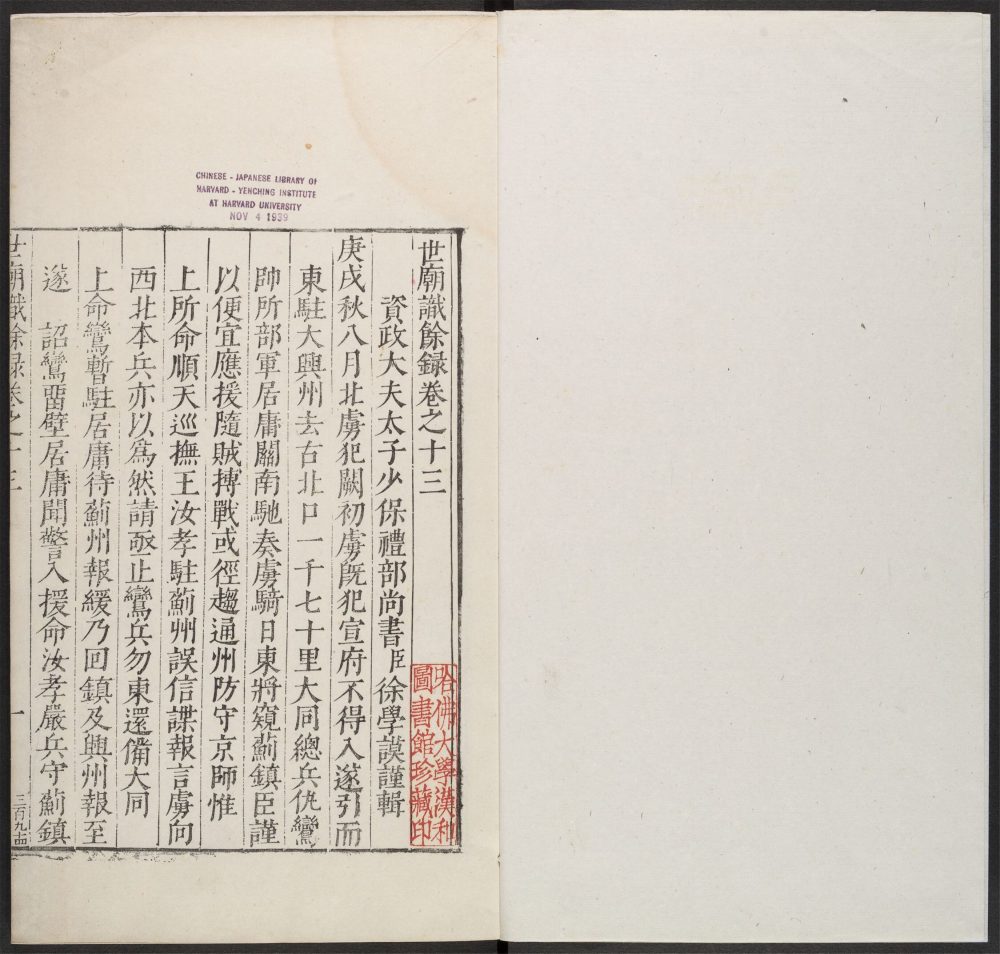 世廟識餘錄卷之十三
資政大夫太子少保禮部尚書臣徐學謨謹輯
庚戌秋八月北虜犯闕初虜旣犯宣府不得入遂引而
東駐大興州去古北口一千七十里大同總兵仇鸞
帥所部軍居庸關南馳奏虜騎日東將窺薊鎮臣謹
以便宜應援隨賊搏戰或徑趨通州防守京師惟
上所命順天巡撫王汝孝駐薊州誤信諜報言虜向
西北本兵亦以爲然請亟止鸞兵勿東還備大同
上命鸞暫駐居庸待薊州報緩乃回鎮及興州報至
遂 詔鸞畱壁居庸聞警入援命汝孝嚴兵守薊鎮
世廟識餘録卷之十三
一
三百九十四
CHINESE - JAPANESE LIBRARY OF
HARVARD - YENCHING INSTITUTE
AT HARVARD UNIVERSITY
NOV 4 1939
哈佛大學漢和
圖書館珍藏印